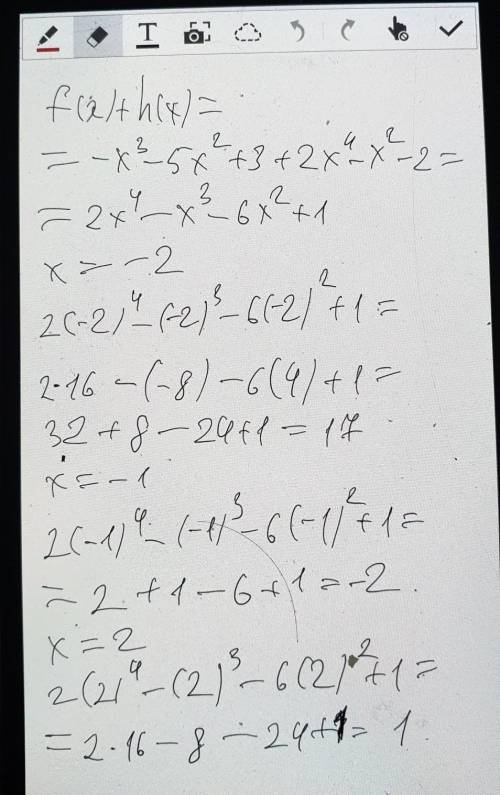 T
f(x)+h(x)=
= -x³-5x²+3+2x⁴-x²-2=
= 2x⁴-x³-6x²+1
x=-2
2(-2)⁴-(-2)³-6(-2)²+1=
2·16-(-8)-6(4)+1=
32+8-24+1=17
x=-1
2(-1)⁴-(-1)³-6(-1)²+1=
=2+1-6+1=-2.
x=2
2(2)⁴-(2)³-6(2)²+1=
=2·16-8-24+1=1.